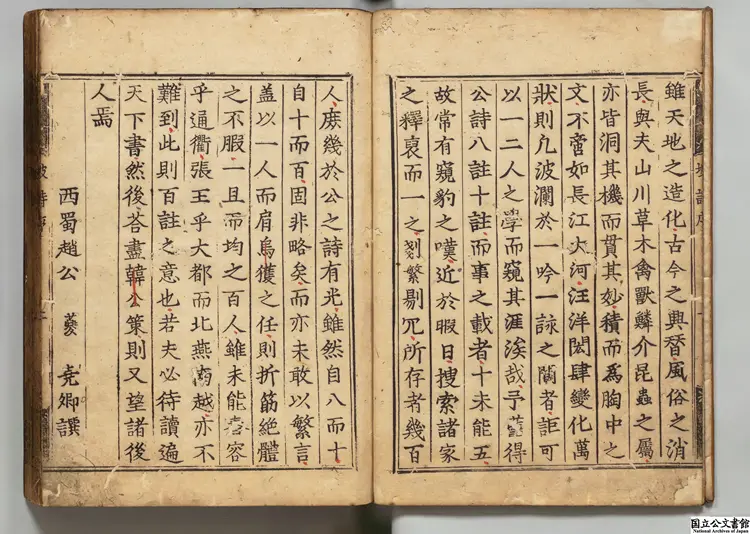 雖天地之造化古今之興替風俗之消
長與夫山川草木禽獸鱗介昆蟲之屬
亦皆洞其機而貫其妙積而爲胸中之
文不啻如長江大河汪洋閎肆變化萬
狀則凡波瀾於一吟一詠之間者詎可
以一二人之學而窺其涯涘哉予舊得
公詩八註十註而事之載者十未能五
故常有窺豹之嘆近於暇日搜索諸家
之釋裒而一之剗繁剔冗所存者幾百
人庶幾於公之詩有光雖然自八而十
自十而百固非略矣而亦未敢以繁言
盖以一人而肩烏獲之任則折筋絶體
之不暇一旦而均之百人雖未能舂容
乎通衢張王乎大都而北燕南越亦不
難到此則百註之意也若夫必待讀遍
天下書然後荅盡韓公策則又望諸後
人焉
西蜀趙公 夔 堯卿譔
国立公文書館
National Archives of Japan